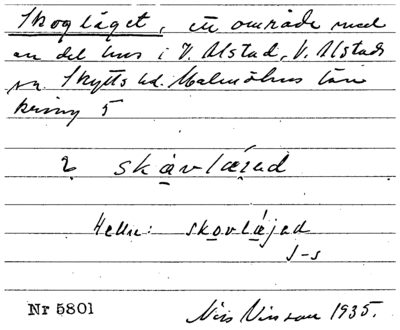 Skogläget, ett område med
en del hus i V. Alstad, V. Alstads
sn. Skytts hd. Malmöhus län
kring 5
2 skävlæ̣jad
Hellre: skovlæjad
J-s
Nr 5801 Nils Nilsson 1935.